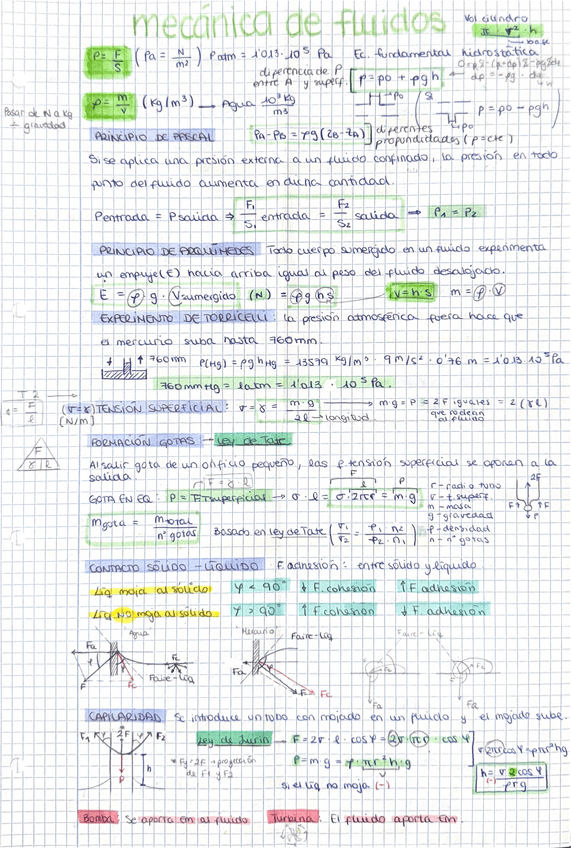 mecánica de fluidos
Vol cilindro
π · r² · h
base
P = F/S (Pa = N/m²) Patm = 1'013 · 10⁵ Pa Ec. fundamental hidrostática
diferencia de P entre A y superf. [p = p0 + ρgh
dp = -ρg · dz
ρ = m/v (kg/m³) → Agua 10³ kg/m³
p0
p = p0 - ρgh)
Pasar de N a kg
÷ gravedad
PRINCIPIO DE PASCAL PA - PB = ρg (ZB - ZA)] diferentes profundidades (ρ = cte)
Si se aplica una presión externa a un fluido confinado, la presión en todo
punto del fluido aumenta en dicha cantidad.
Pentrada = Psalida ⇒ F1/S1 entrada = F2/S2 salida → P1 = P2
PRINCIPIO DE ARQUÍMEDES Todo cuerpo sumergido en un fluido experimenta
un empuje (E) hacia arriba igual al peso del fluido desalojado.
E = ρ · g · Vsumergido (N) = ρ g h s V = h · s m = ρ · V
EXPERIMENTO DE TORRICELLI: la presión atmosférica fuera hace que
el mercurio suba hasta 760mm.
760mm P(Hg) = ρ g hHg = 13579 kg/m³ · 9 m/s² · 0'76 m = 1'013 · 10⁵ Pa
760 mm Hg = 1 atm = 1'013 · 10⁵ Pa.
(σ = γ) TENSIÓN SUPERFICIAL: σ = γ = m · g / 2l → longitud → mg = P = 2F iguales = 2 (γl)
(N/m)
que rodean al fluido
F
γ | l
FORMACIÓN GOTAS → Ley de Tate
Al salir gota de un orificio pequeño, las f tensión superficial se oponen a la
salida.
F = γ · l
GOTA EN EQ: P = F Tsuperficial → σ · l = σ · 2πr = m · g
r - radio tubo
σ - t. superf.
m - masa
g - gravedad
ρ - densidad
n - nº gotas
2F
F F
P
mgota = mtotal / nº gotas Basado en ley de Tate (σ1/σ2 = ρ1 n2 / ρ2 n1)
CONTACTO SÓLIDO - LÍQUIDO F. adhesión: entre sólido y líquido
Liq moja al sólido φ < 90° ↓ F. cohesión ↑ F adhesión
Liq NO moja al sólido φ > 90° ↑ F cohesión ↓ F. adhesión
Agua
Fa
F
Fc
Faire-liq
Mercurio
Faire-liq
Fa
F
Fc
Faire-liq
Fa
Fa
CAPILARIDAD Se introduce un tubo con mojado en un fluido y el mojado sube.
F1 2F F2
P
h
Ley de Jurin → F = 2σ · l · cos φ = 2σ · πr · cos φ
* Fy: 2F → proyección de F1 y F2
P = m · g = ρ · πr² h · g
V
si el liq no moja (-)
σ 2πr cos φ = ρπr² hg
h = σ 2 cos φ / ρrg
(-)
Bomba: Se aporta em al fluido Turbina: El fluido aporta Em.